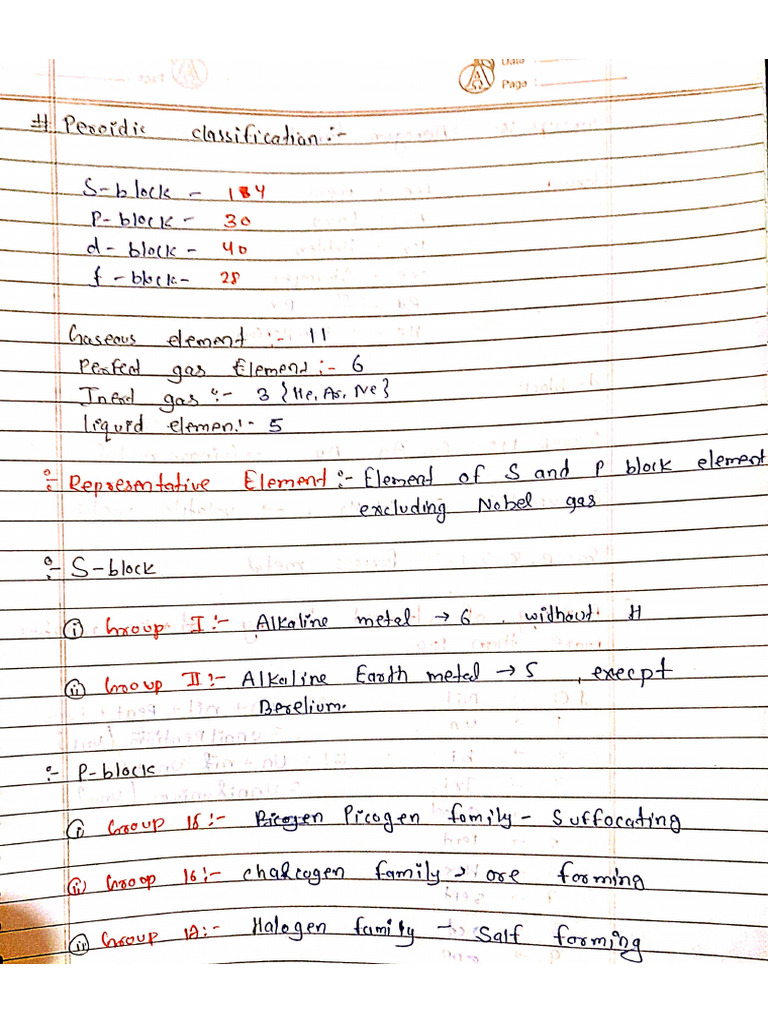 Date
Page :
# Peroidic classification :-
S-block - 184
P-block - 30
d-block - 40
f-block - 28
Gaseous element :- 11
Perfect gas Element :- 6
Inerd gas :- 3 {He, Ar, Ne}
liquid element :- 5
:- Representative Element :- Element of S and P block element
excluding Nobel gas
:- S-block
(i) Group I :- Alkaline metal → 6 , without H
(ii) Group II :- Alkaline Earth metal → 5 , execpt
Berelium.
:- P-block
(i) Group 15 :- Picogen family - Suffocating
(ii) Group 16 :- chalcogen family → ore forming
Group :- Halogen family - Salt forming